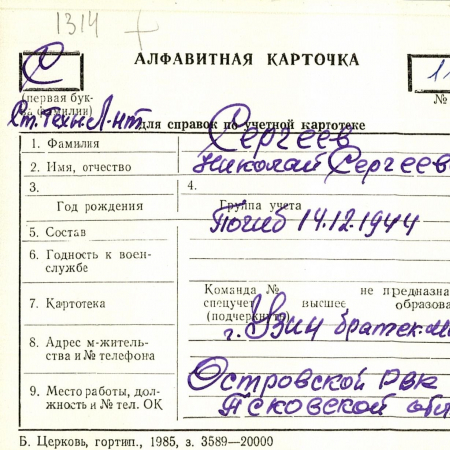 1314
АЛФАВИТНАЯ КАРТОЧКА
С
11
(первая бук-
ва фамилии)
№
Ст. Техн. Л-нт.
для справок по учетной картотеке
1. Фамилия Сергеев
2. Имя, отчество Николай Сергеев
3. 4.
Год рождения Группа учета
Погиб 14.12.1944
5. Состав
6. Годность к воен-
службе
Команда № не предназна
7. Картотека спецучет высшее образова
(подчеркнуть)
г. Узин братск.
8. Адрес м-житель-
ства и № телефона
Островской РВК
9. Место работы, дол-
жность и № тел. ОК
Псковской обл
Б. Церковь, гортип., 1985, з. 3589—20000